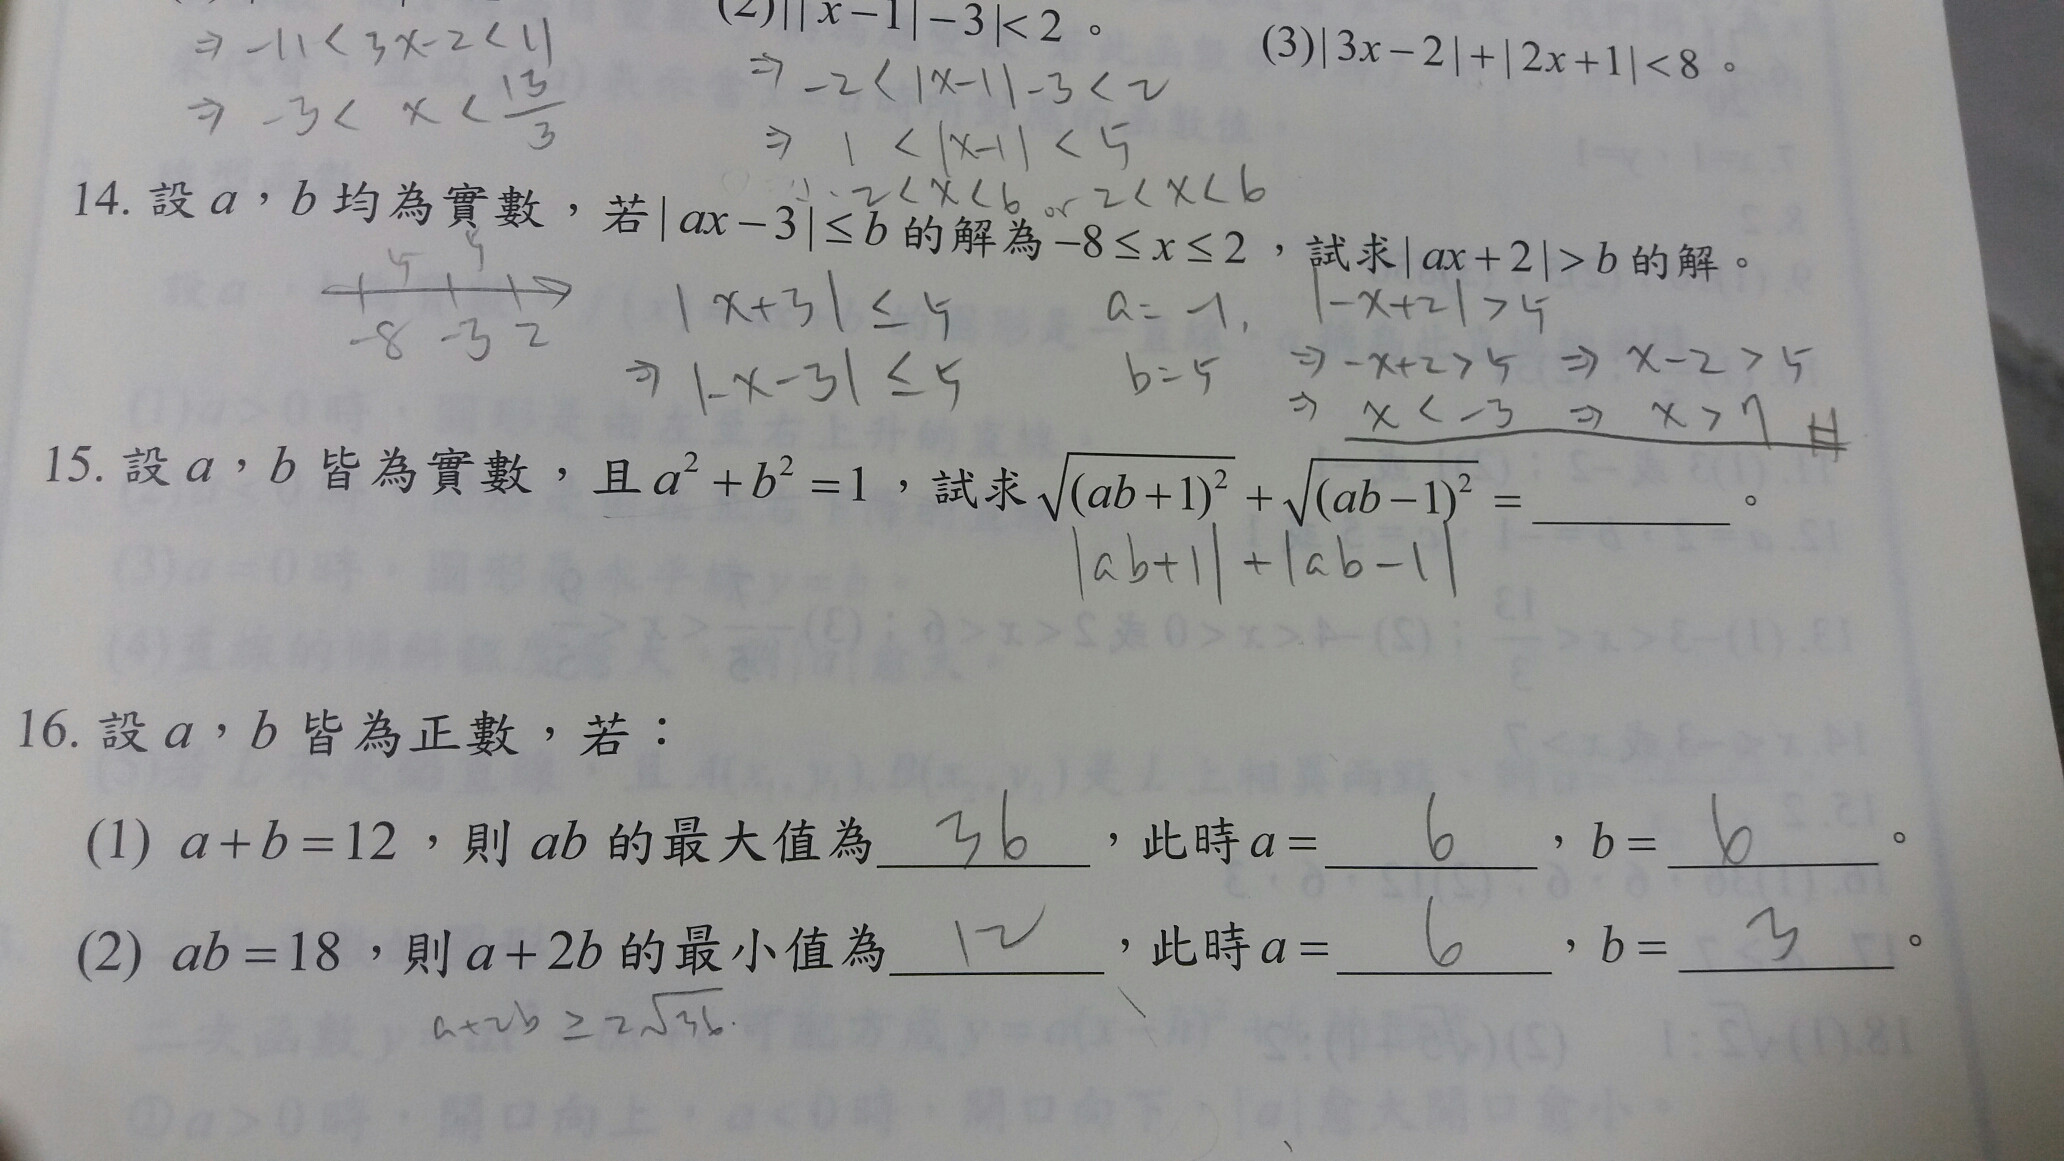 (2)||x−1|−3|<2。
⇒ -11<3x-2<11
(3)|3x−2|+|2x+1|<8。
⇒ -2<|x-1|-3<2
⇒ -3< x < 13/3
⇒ 1 <|x-1| < 5
2<x<6 or 2<x<6
14. 設 a，b 均為實數，若|ax−3|≤b 的解為−8≤x≤2，試求|ax+2|>b 的解。
5 5
-8 -3 2
|x+3| ≤ 5 a=-1, |-x+2|>5
⇒ |-x-3| ≤ 5 b=5 ⇒ -x+2>5 ⇒ x-2>5
⇒ x<-3 ⇒ x>7 #
15. 設 a，b 皆為實數，且 a²+b²=1，試求√(ab+1)²+√(ab−1)²=______。
|ab+1|+|ab-1|
16. 設 a，b 皆為正數，若：
(1) a+b=12，則 ab 的最大值為 36，此時 a= 6，b= 6。
(2) ab=18，則 a+2b 的最小值為 12，此時 a= 6，b= 3。
a+2b ≥ 2√36.